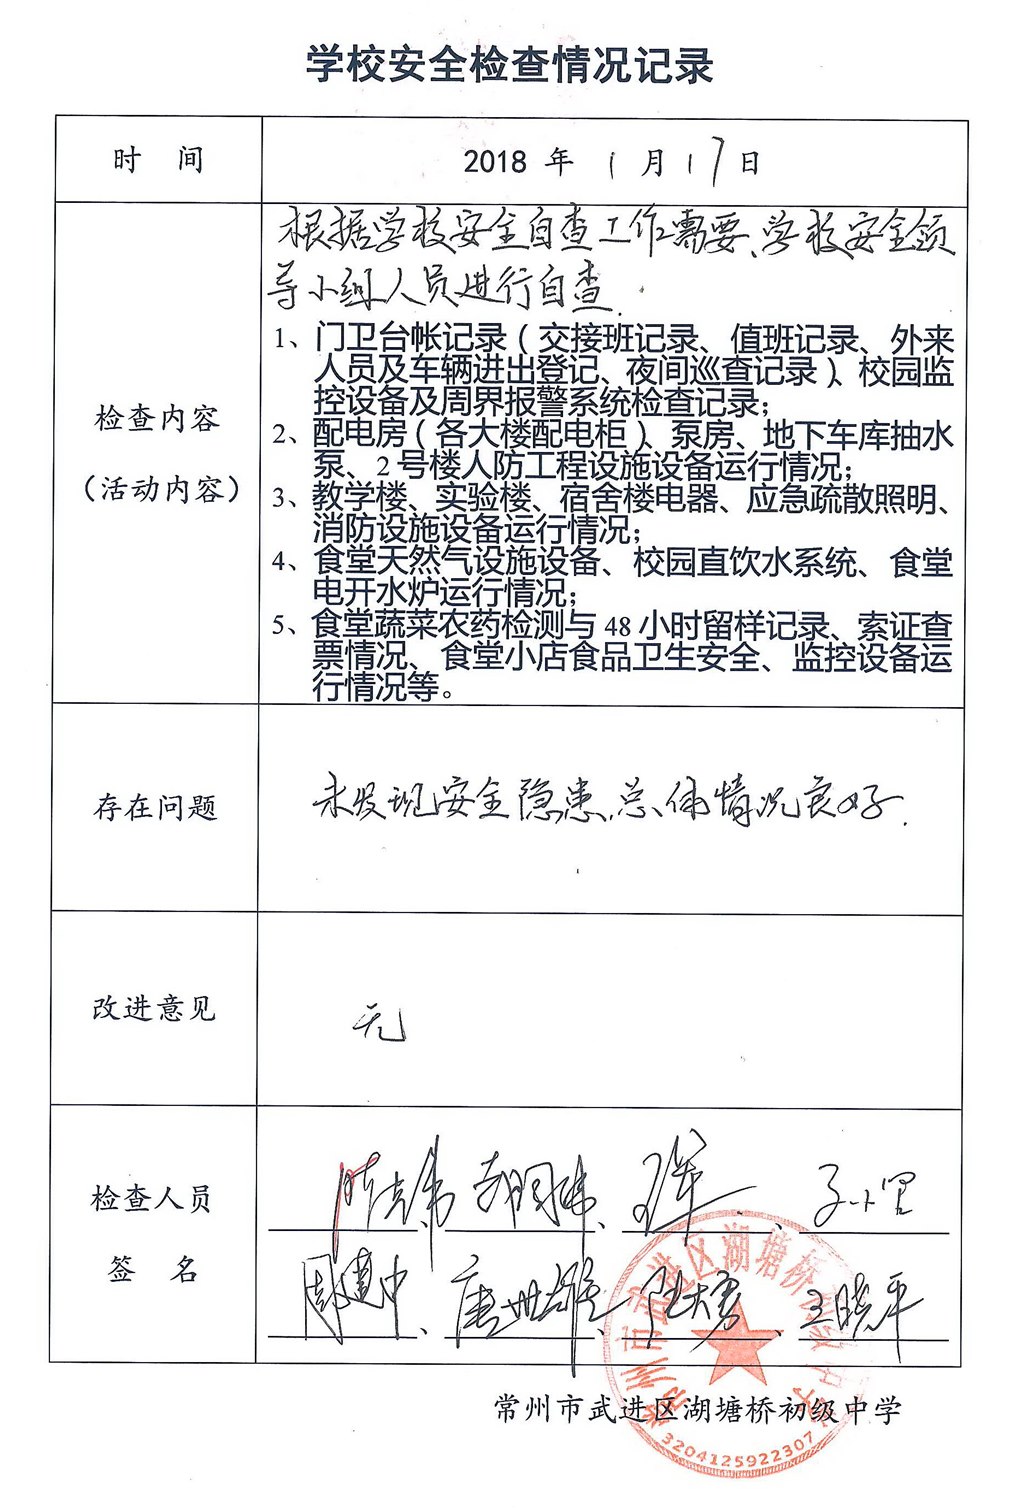 学校安全检查情况记录
时 间
2018 年 1 月 17 日
检查内容
（活动内容）
根据学校安全自查工作需要、学校安全领
导小组人员进行自查.
1、门卫台帐记录（交接班记录、值班记录、外来
人员及车辆进出登记、夜间巡查记录）、校园监
控设备及周界报警系统检查记录；
2、配电房（各大楼配电柜）、泵房、地下车库抽水
泵、2 号楼人防工程设施设备运行情况；
3、教学楼、实验楼、宿舍楼电器、应急疏散照明、
消防设施设备运行情况；
4、食堂天然气设施设备、校园直饮水系统、食堂
电开水炉运行情况；
5、食堂蔬菜农药检测与 48 小时留样记录、索证查
票情况、食堂小店食品卫生安全、监控设备运
行情况等。
存在问题
未发现安全隐患,总体情况良好.
改进意见
无
检查人员
签 名
周建中、唐世雄、陆大勇、王晓平
常州市武进区湖塘桥初级中学
常州市武进区湖塘桥初级中学
3204125922307